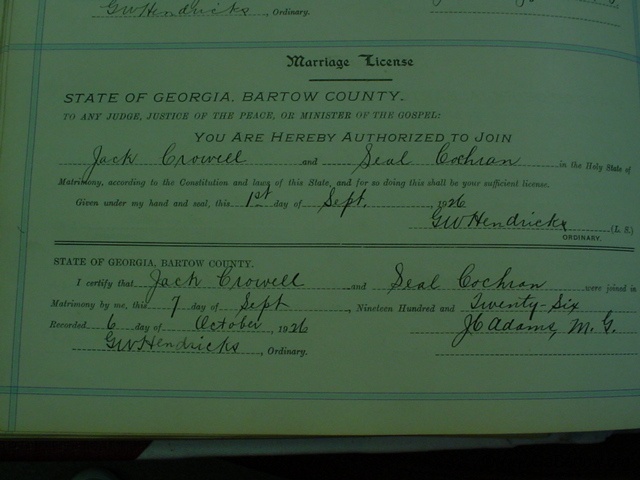 GW Hendricks, Ordinary.
Marriage License
STATE OF GEORGIA, BARTOW COUNTY.
TO ANY JUDGE, JUSTICE OF THE PEACE, OR MINISTER OF THE GOSPEL:
YOU ARE HEREBY AUTHORIZED TO JOIN
Jack Crowell and Seal Cochran in the Holy State of
Matrimony, according to the Constitution and laws of this State, and for so doing this shall be your sufficient license.
Given under my hand and seal, this 1st day of Sept. 1926
GW Hendricks (L. S.)
ORDINARY.
STATE OF GEORGIA, BARTOW COUNTY.
I certify that Jack Crowell and Seal Cochran were joined in
Matrimony by me, this 7 day of Sept, Nineteen Hundred and Twenty-Six
Recorded 6 day of October 1926 JC Adams, M. G.
GW Hendricks, Ordinary.